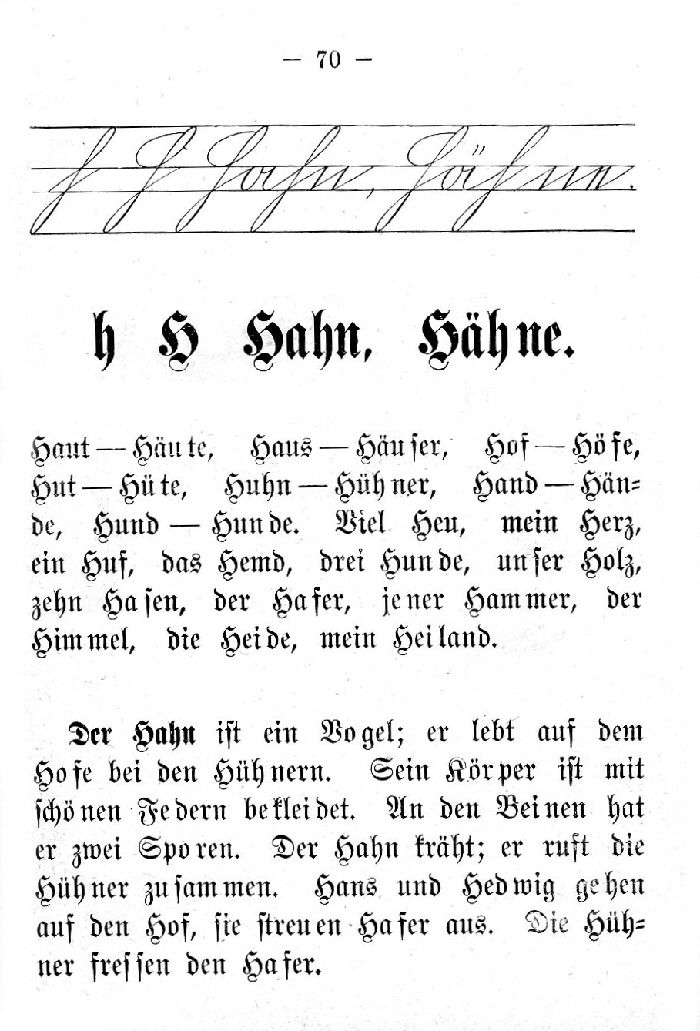 — 70 —
h H Hahn, Hähne.
h H Hahn, Hähne.
Haut — Häute, Haus — Häuser, Hof — Höfe,
Hut — Hüte, Huhn — Hühner, Hand — Hän=
de, Hund — Hunde. Viel Heu, mein Herz,
ein Huf, das Hemd, drei Hunde, unser Holz,
zehn Hasen, der Hafer, jener Hammer, der
Himmel, die Heide, mein Heiland.
Der Hahn ist ein Vogel; er lebt auf dem
Hofe bei den Hühnern. Sein Körper ist mit
schönen Federn bekleidet. An den Beinen hat
er zwei Sporen. Der Hahn kräht; er ruft die
Hühner zusammen. Hans und Hedwig gehen
auf den Hof, sie streuen Hafer aus. Die Hüh=
ner fressen den Hafer.